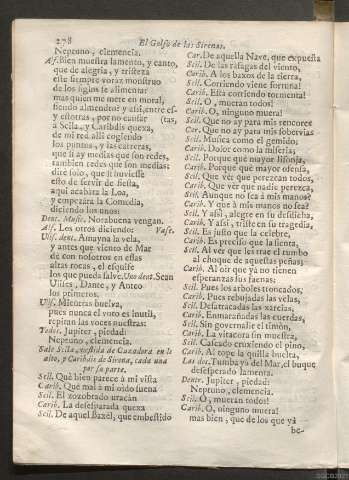 278
El Golfo de las Sirenas.
Neptuno, clemencia.
Alf. Bien muestra lamento, y canto,
que de alegria, y tristeza
este siempre voraz monstruo
de los siglos se alimenta:
mas quien me mete en moral,
siendo almendro? y assi, entre es-
y estotras, por no causar (tas,
à Scila, y Caribdis quexa,
de mi red alli cogiendo
los puntos, y las carreras,
que si ay medias que son redes,
tambien redes que son medias;
dire solo, que si huviesse
esto de servir de fiesta,
aqui acabàra la Loa,
y empezàra la Comedia,
diciendo los unos:
Dent. Music. Norabuena vengan.
Alf. Los otros diciendo: Vase.
Ulis. dent. Amayna la vela,
y antes que viento de Mar
dè con nosotros en essas
altas rocas, el esquife
los que pueda salve. Uno dent. Sean
Ulises, Dante, y Anteo
los primeros.
Ulis. Mientras buelva,
pues nunca el voto es inutil,
repitan las voces nuestras:
Todos. Jupiter, piedad:
Neptuno, clemencia.
Sale Scila, vestida de Cazadora en lo
alto, y Caribdis de Sirena, cada una
por su parte.
Scil. Què bien parece à mi vista
Carib. Què mal à mi oìdo suena
Scil. El zozobrado uracàn
Carib. La desesperada quexa
Scil. De aquel Baxel, que embestido
Car. De aquella Nave, que expuesta
Scil. De las rafagas del viento,
Carib. A los baxos de la tierra,
Scil. Corriendo viene fortuna!
Carib. Està corriendo tormenta!
Scil. O, mueran todos!
Carib. O, ninguno muera!
Scil. Que no ay para mis rencores
Car. Que no ay para mis sobervias
Scil. Musica como el gemido.
Carib. Dolor como la miseria.
Scil. Porque què mayor lisonja,
Carib. Porque què mayor ofensa,
Scil. Que vèr que perezcan todos,
Carib. Que vèr que nadie perezca,
Scil. Aunque no sea à mis manos?
Carib. Y que à mis manos no sea?
Scil. Y assi, alegre en su desdicha,
Carib. Y assi, triste en su tragedia,
Scil. Es justo que la celebre,
Carib. Es preciso que la sienta,
Scil. Al vèr que les trae el rumbo
al choque de aquestas peñas;
Carib. Al oìr que yà no tienen
esperanzas sus faenas:
Scil. Pues los arboles troncados,
Carib. Pues rebujadas las velas,
Scil. Destrazadas las xarcias,
Carib. Enmarañadas las cuerdas,
Scil. Sin governalle el timòn,
Carib. La vitacora sin muestra,
Scil. Cascado cruxiendo el pino,
Carib. Al tope la quilla buelta,
Las dos. Tumba yà del Mar, el buque
desesperado lamenta.
Dentr. Jupiter, piedad:
Neptuno, clemencia.
Scil. O, mueran todos!
Carib. O, ninguno muera!
mas bien, que de los que yà
be-